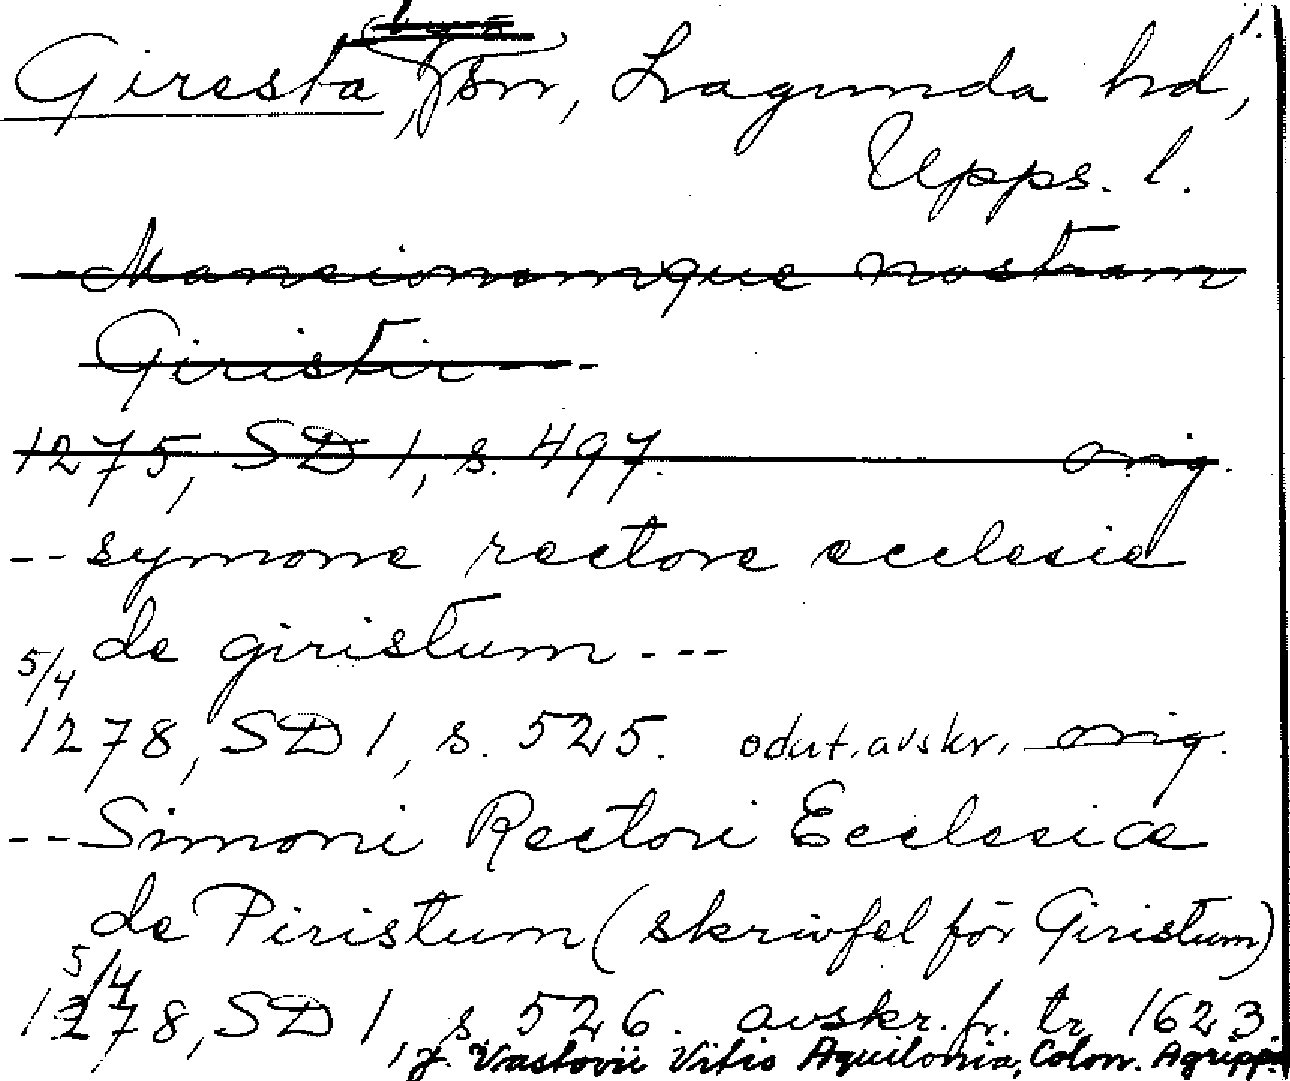 1.
Giresta, sn, Lagunda hd,
Upps. l.
Mansionemque nostram
Giristir ---
1275, SD 1, s. 497. orig.
-- symone rectore ecclesie
de giristum ---
5/4
1278, SD 1, s. 525. odat. avskr. orig.
-- Simoni Rectori Ecclesiæ
de Piristum (skrivfel för Giristum)
5/4
1278, SD 1, s. 526. avskr. fr. tr. 1623.
i J. Vastovii Vitis Aquilonia, Colon. Agripp.